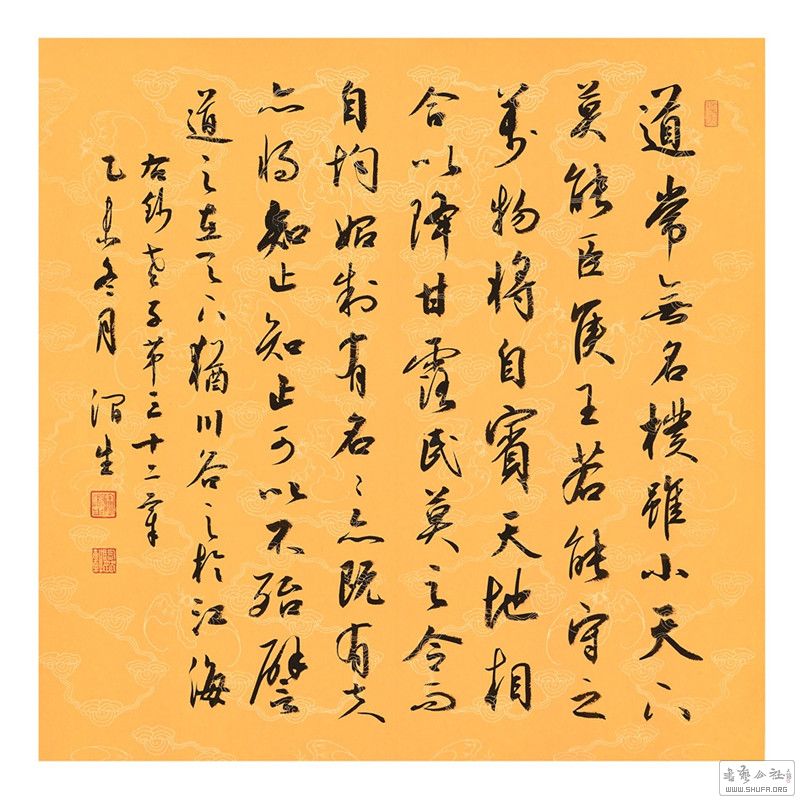 道常無名樸雖小天下
莫能臣侯王若能守之
萬物將自賓天地相
合以降甘露民莫之令而
自均始制有名々亦既有夫
亦將知止知止可以不殆譬
道之在天下猶川谷之於江海
右鈔老子第三十二章
乙未冬月 渭生
书艺公社
WWW.SHUFA.ORG